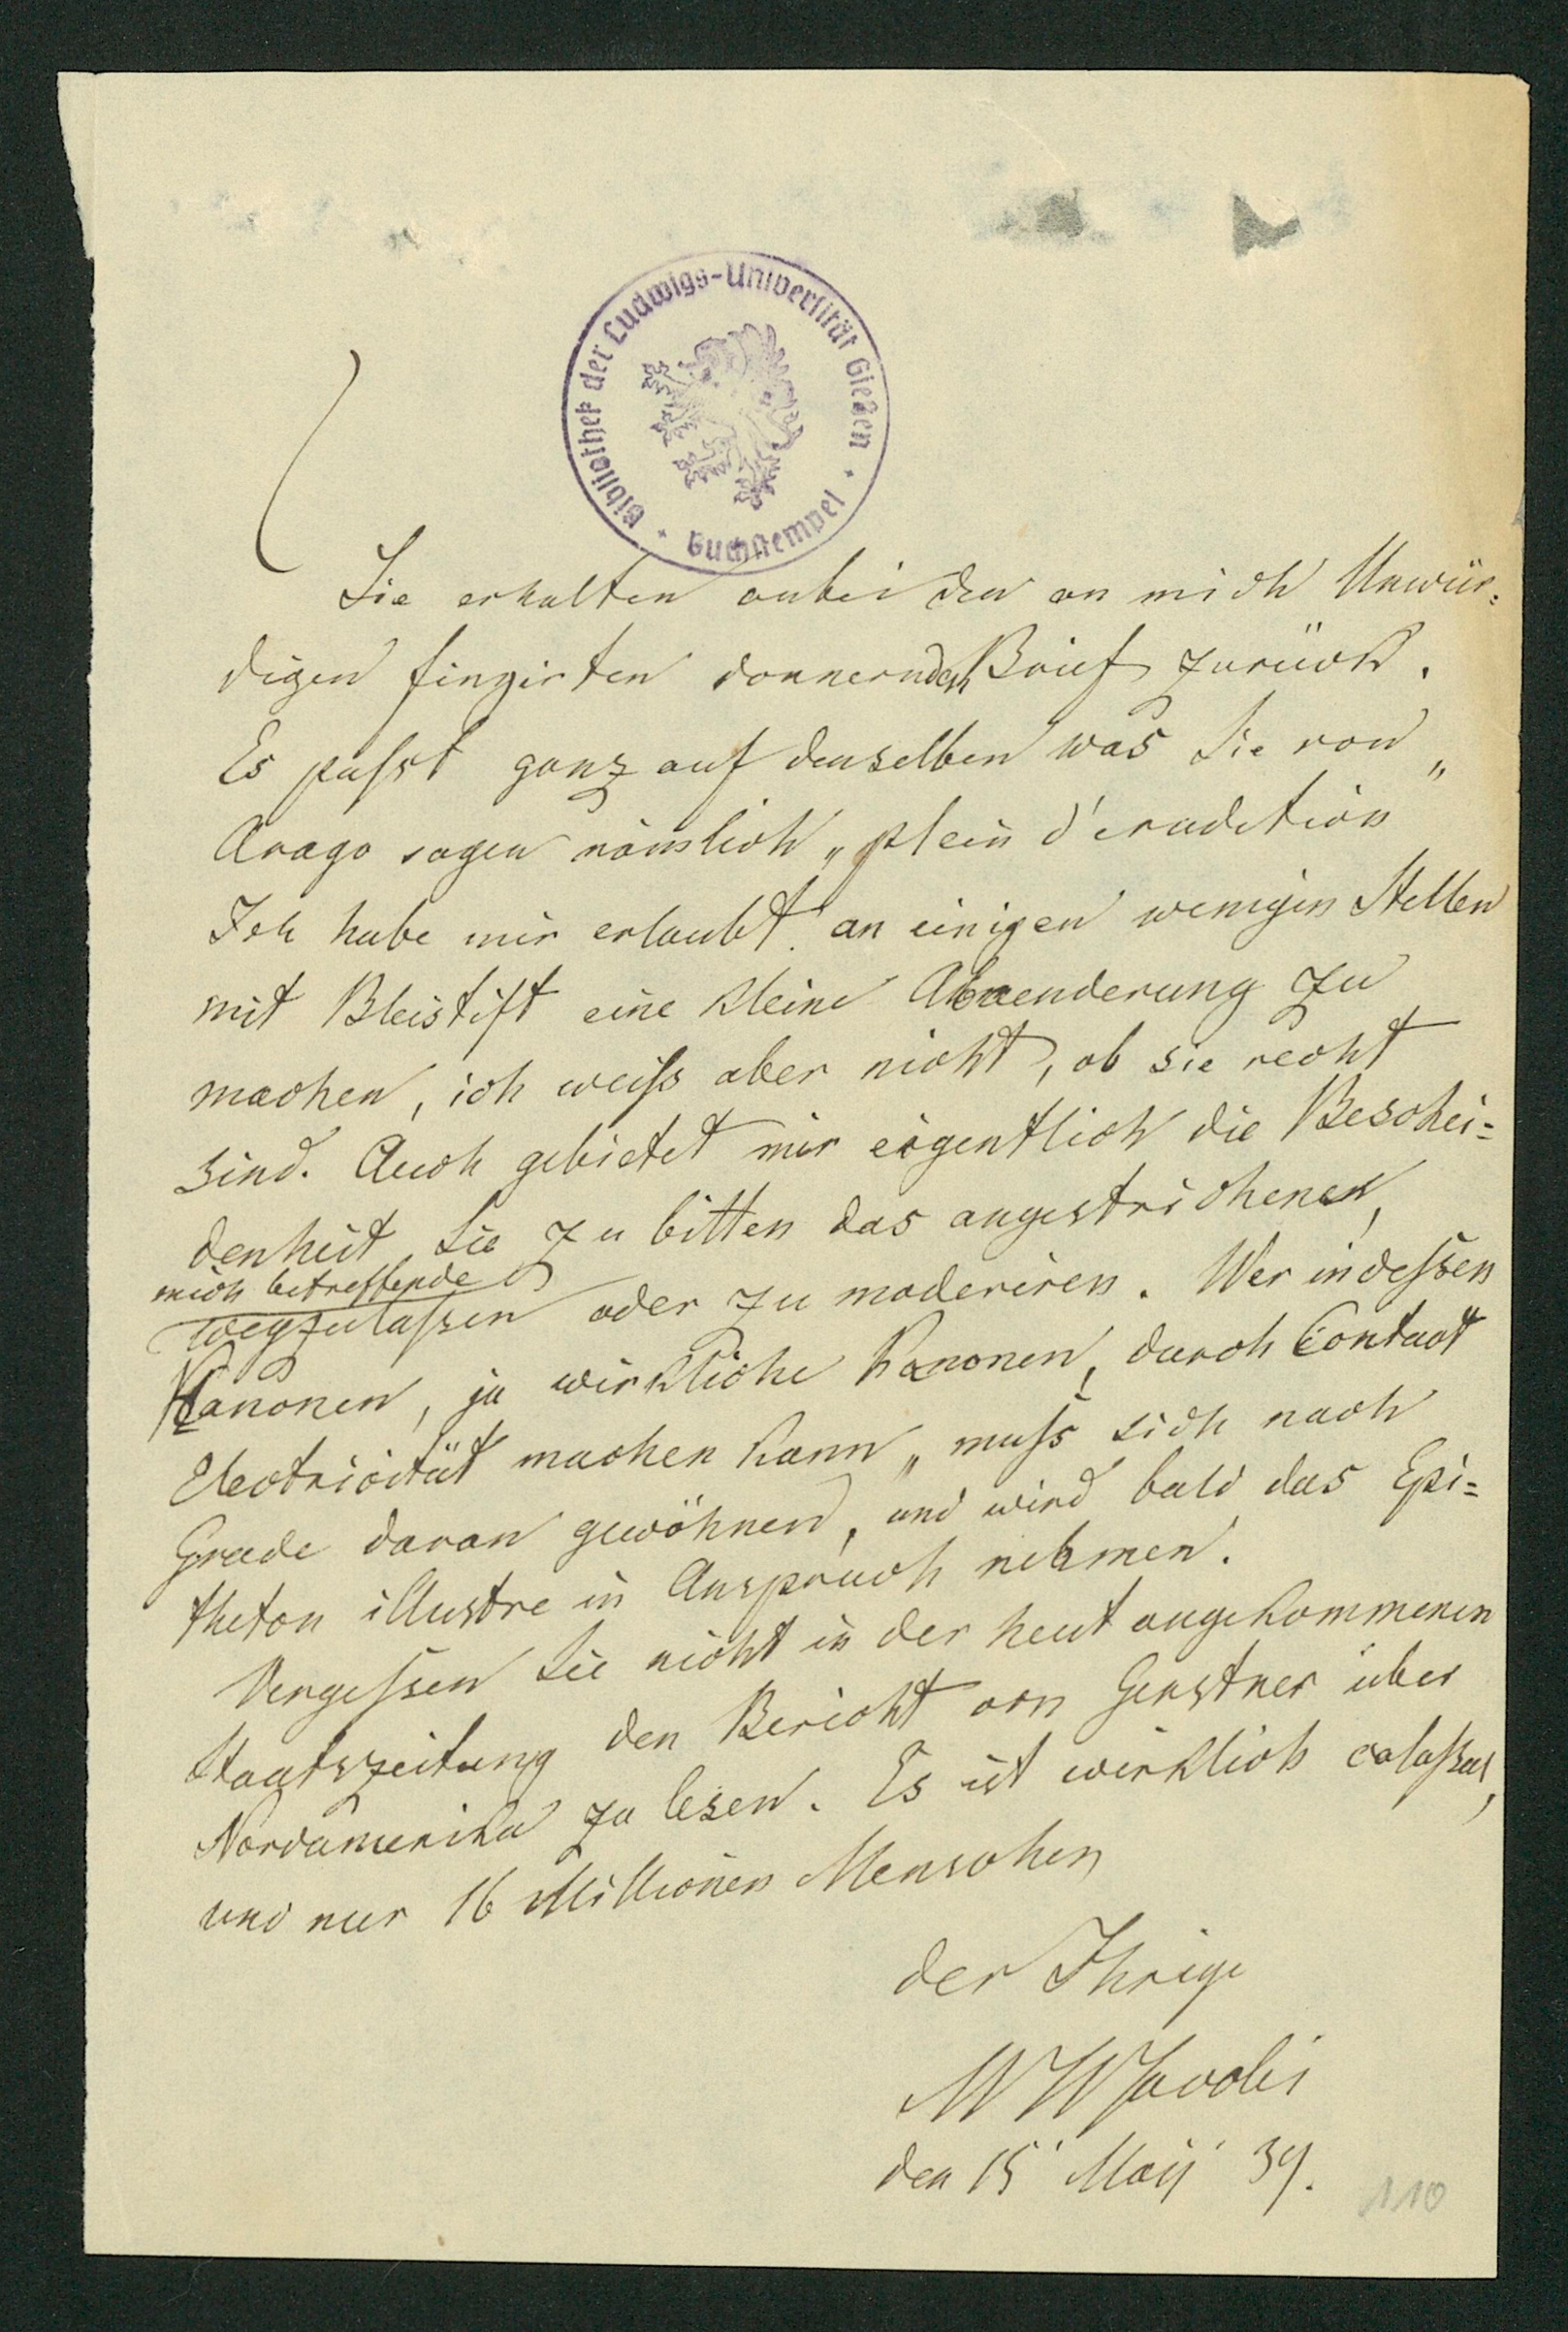 Bibliothek der Ludwigs-Universität Gießen
Buchstempel
Sie erhalten anbei den an mich Unwür=
digen fingirten donnernden Brief zurück.
Es passt ganz auf denselben was Sie von
Arago sagen nämlich „plein d'erudition“
Ich habe mir erlaubt an einigen wenigen Stellen
mit Bleistift eine kleine Abaenderung zu
machen, ich weiss aber nicht, ob sie recht
sind. Auch gebietet mir eigentlich die Beschei=
denheit, Sie zu bitten das angestrichene,
mich betreffende
wegzulassen oder zu moderiren. Wer indessen
Kanonen, ja wirkliche Kanonen, durch Contact
Electricität machen kann, muss sich nach
Grade daran gewöhnen, und wird bald das Epi=
theton illustre in Anspruch nehmen.
Vergessen Sie nicht in der heut angekommenen
Staatszeitung den Bericht von Gerstner über
Nordamerika zu lesen. Es ist wirklich colossal,
und nur 16 Millionen Menschen
der Ihrige
MHJacobi
den 15 Maij 39.
110